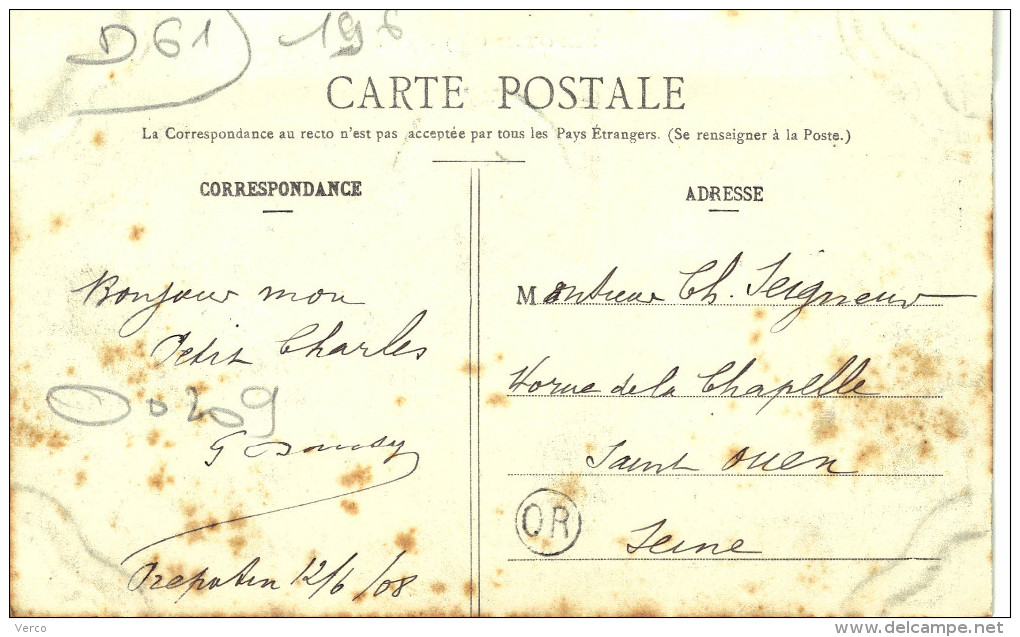 D61 196
CARTE POSTALE
La Correspondance au recto n'est pas acceptée par tous les Pays Étrangers. (Se renseigner à la Poste.)
CORRESPONDANCE
Bonjour mon
Petit Charles
D 209
G
12/6/08
ADRESSE
Monsieur Ch. Seigneur
rue de la Chapelle
Saint Ouen
OR
Seine
Verco
http://www.delcampe.net